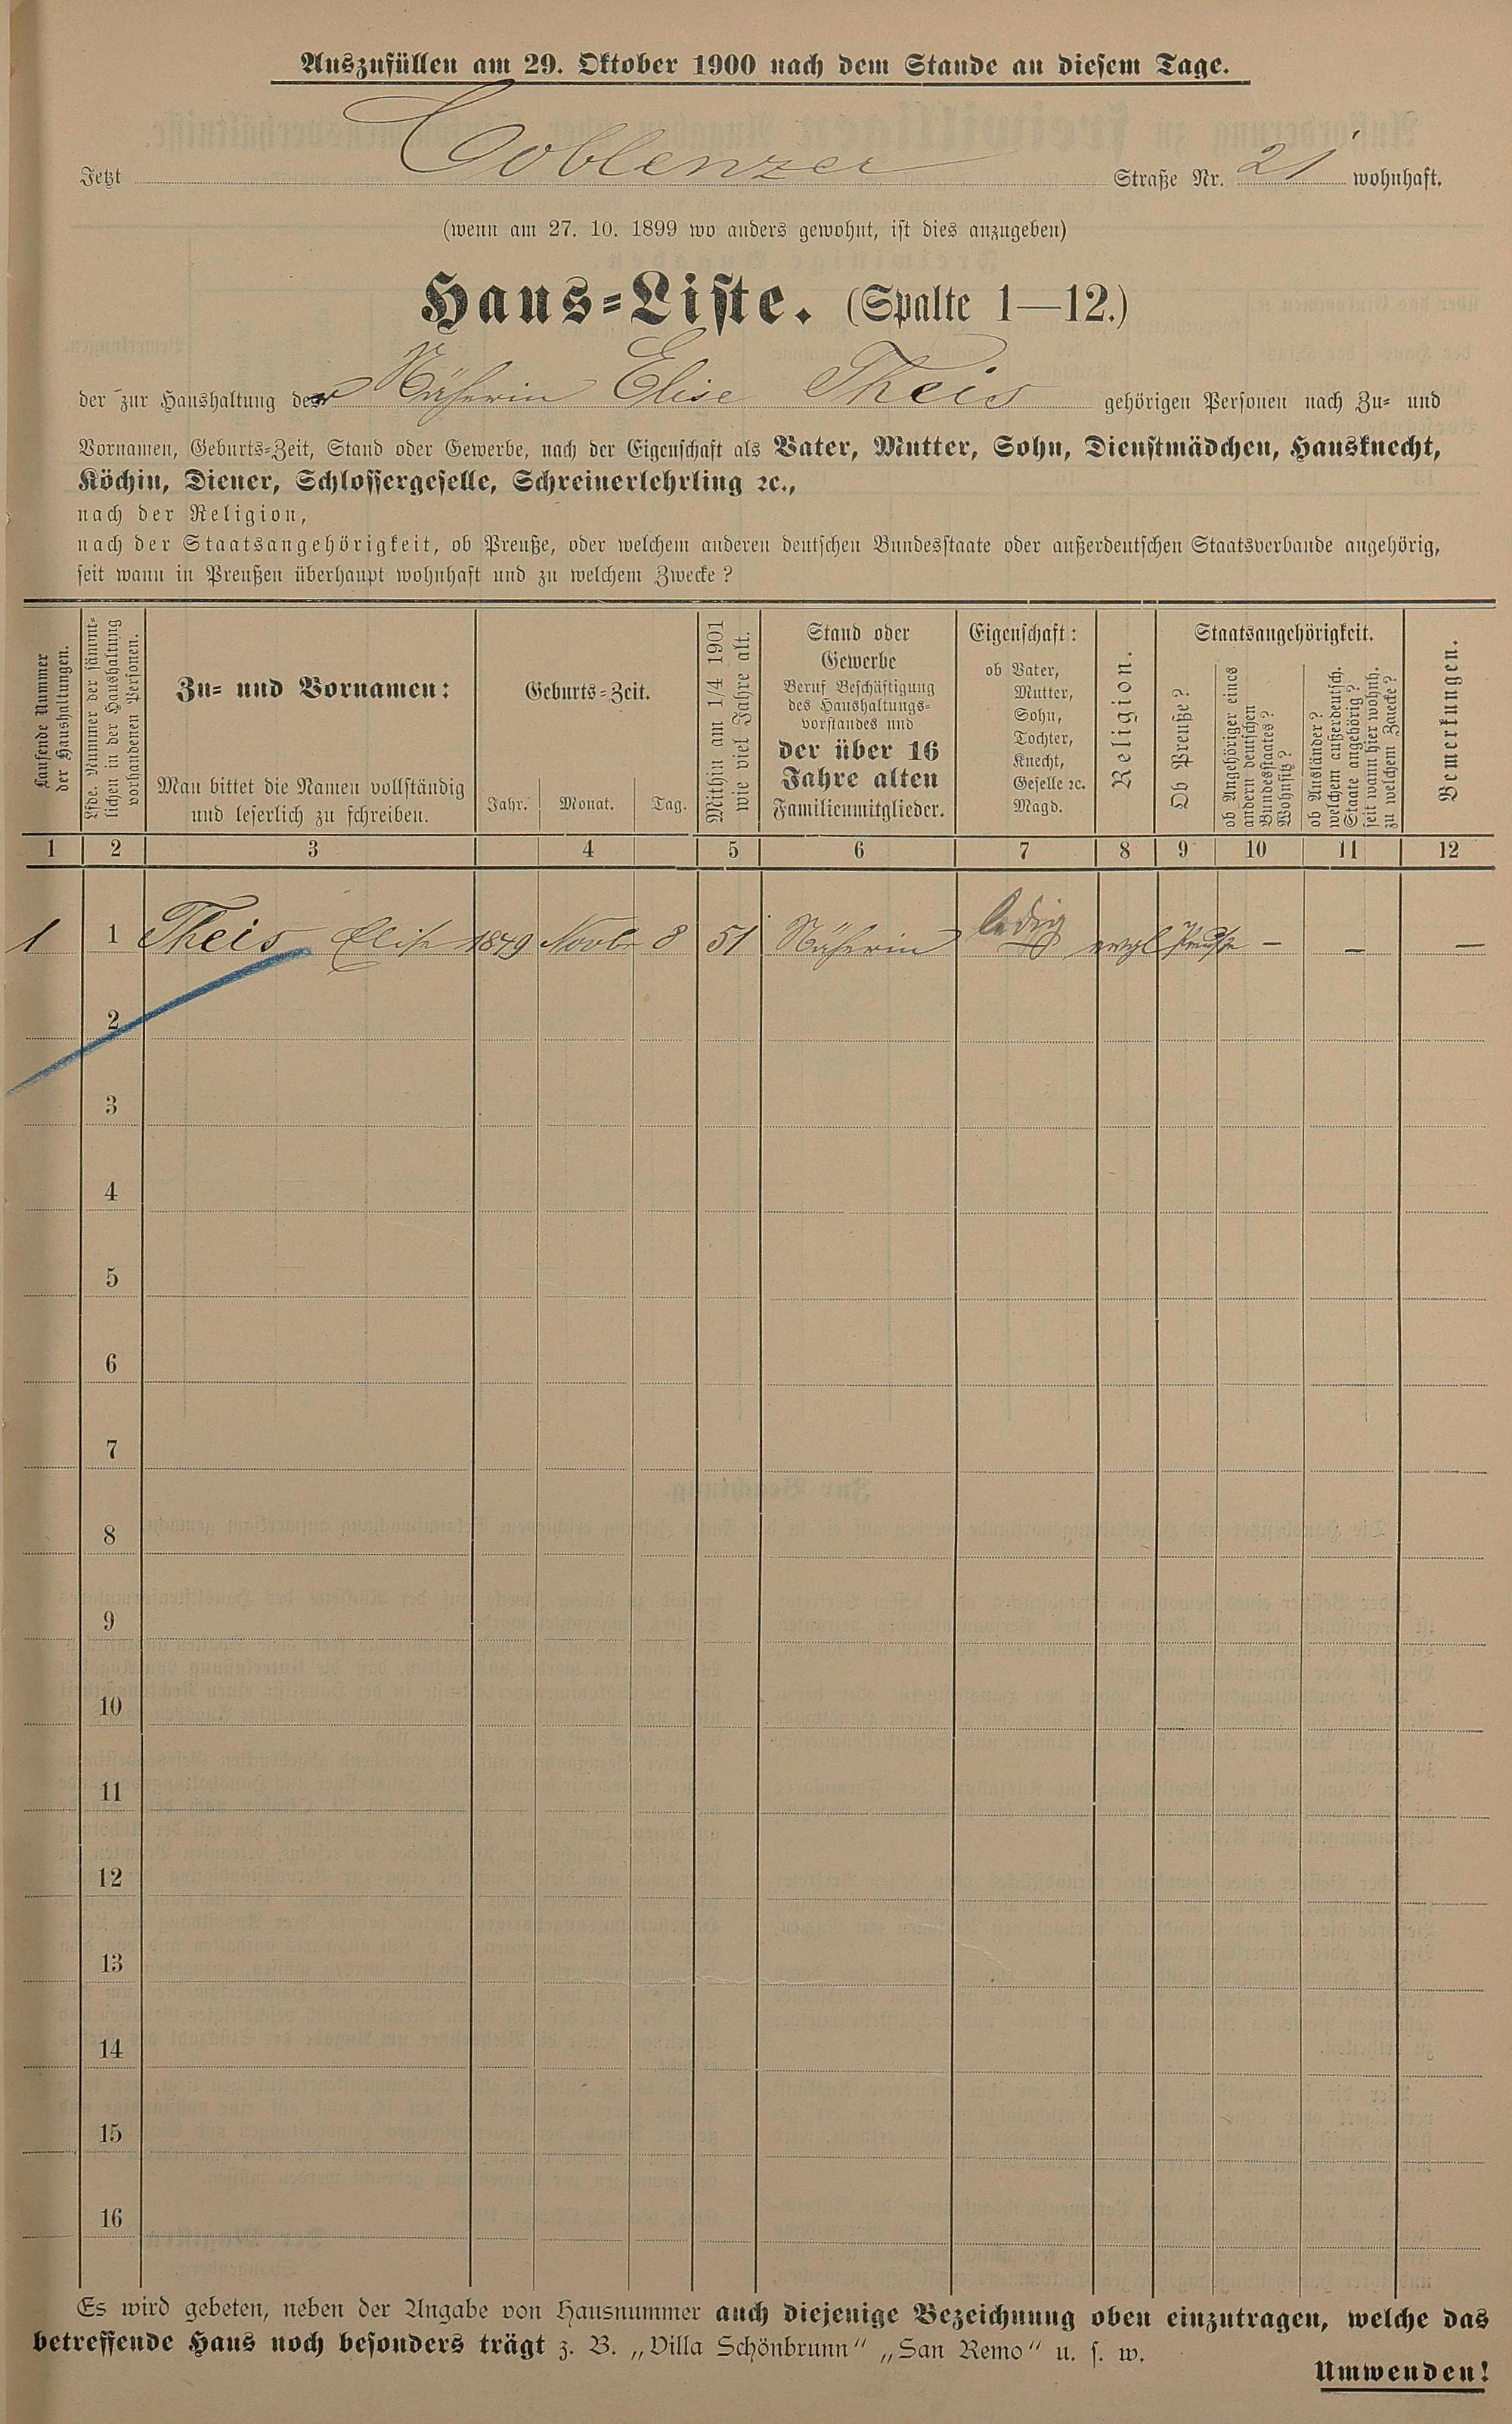 Auszufüllen am 29. Oktober 1900 nach dem Stande an diesem Tage.
Jetzt Coblenzer Straße Nr. 21 wohnhaft.
(wenn am 27. 10. 1899 wo anders gewohnt, ist dies anzugeben)
Haus-Liste. (Spalte 1—12.)
der zur Haushaltung der Näherin Elise Theis gehörigen Personen nach Zu- und
Vornamen, Geburts-Zeit, Stand oder Gewerbe, nach der Eigenschaft als Vater, Mutter, Sohn, Dienstmädchen, Hausknecht,
Köchin, Diener, Schlossergeselle, Schreinerlehrling ꝛc.,
nach der Religion,
nach der Staatsangehörigkeit, ob Preuße, oder welchem anderen deutschen Bundesstaate oder außerdeutschen Staatsverbande angehörig,
seit wann in Preußen überhaupt wohnhaft und zu welchem Zwecke?
Laufende Nummer
der Haushaltungen.
Lfde. Nummer der sämmt-
lichen in der Haushaltung
vorhandenen Personen.
Zu- und Vornamen:
Man bittet die Namen vollständig
und leserlich zu schreiben.
Geburts-Zeit.
Jahr. Monat. Tag.
Mithin am 1/4 1901
wie viel Jahre alt.
Stand oder
Gewerbe
Beruf Beschäftigung
des Haushaltungs-
vorstandes und
der über 16
Jahre alten
Familienmitglieder.
Eigenschaft:
ob Vater,
Mutter,
Sohn,
Tochter,
Knecht,
Geselle ꝛc.
Magd.
Religion.
Staatsangehörigkeit.
Ob Preuße?
ob Angehöriger eines
andern deutschen
Bundesstaates?
Wohnsitz?
ob Ausländer?
welchem außerdeutsch.
Staate angehörig?
seit wann hier wohnh.
zu welchem Zwecke?
Bemerkungen.
1 2 3 4 5 6 7 8 9 10 11 12
1 1 Theis Elise 1849 Novbr 8 51 Näherin ledig evgl Preuße — — —
2
3
4
5
6
7
8
9
10
11
12
13
14
15
16
Es wird gebeten, neben der Angabe von Hausnummer auch diejenige Bezeichnung oben einzutragen, welche das
betreffende Haus noch besonders trägt z. B. „Villa Schönbrunn“ „San Remo“ u. s. w.
Umwenden!